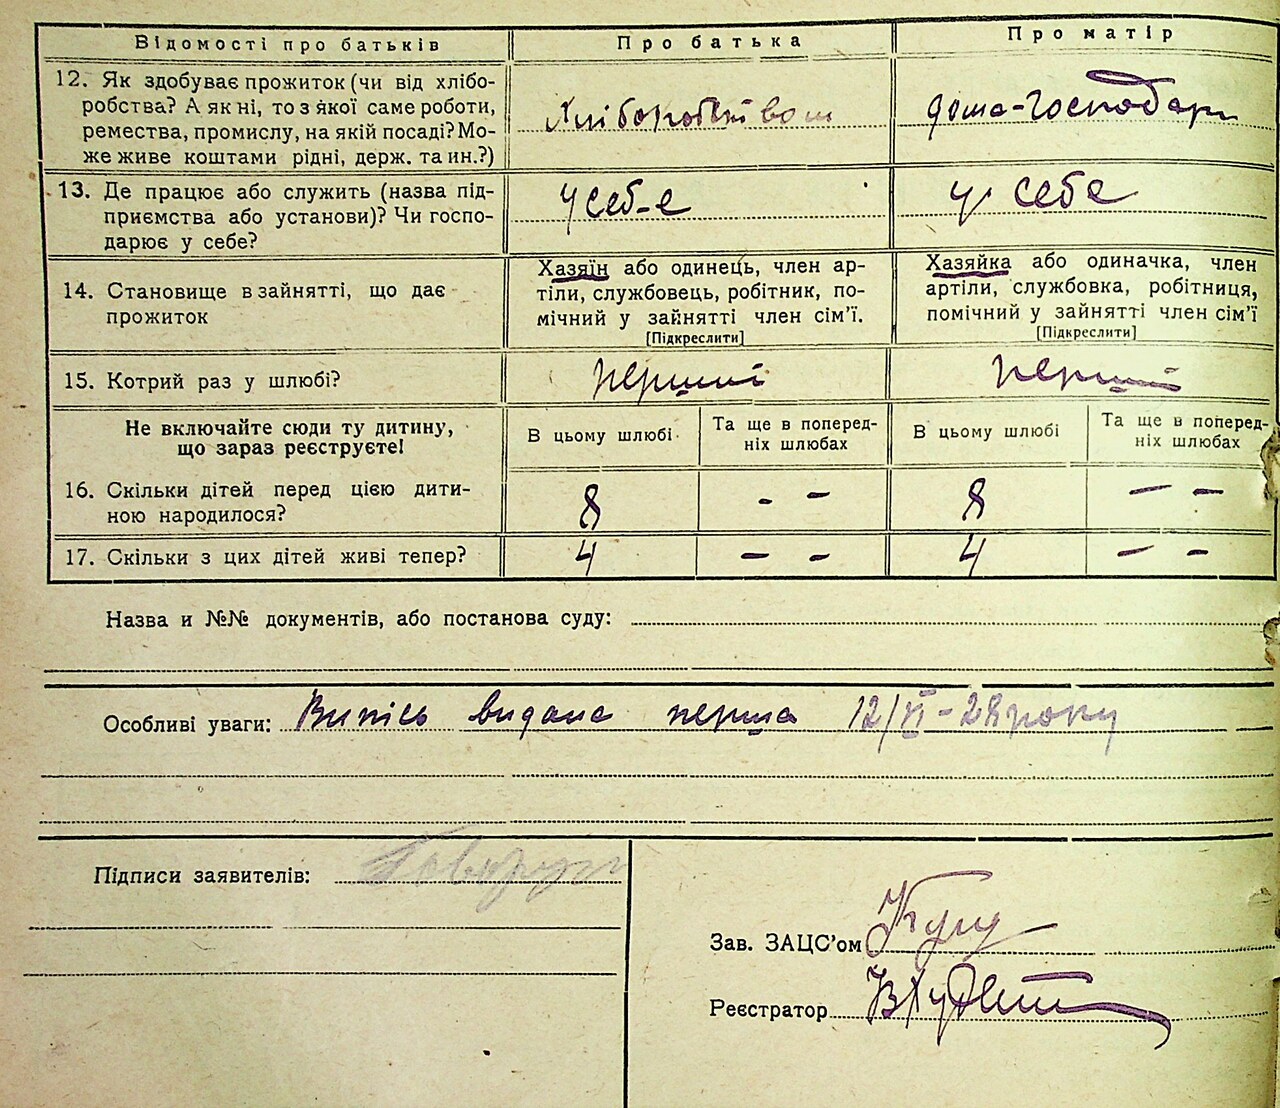 Відомості про батьків
Про батька
Про матір
12. Як здобуває прожиток (чи від хлібо-
робства? А як ні, то з якої саме роботи,
ремества, промислу, на якій посаді? Мо-
же живе коштами рідні, держ. та ин.?)
Хліборобством
дома-господари
13. Де працює або служить (назва під-
приємства або установи)? Чи госпо-
дарює у себе?
у себе
у себе
14. Становище в зайнятті, що дає
прожиток
Хазяїн або одинець, член ар-
тіли, службовець, робітник, по-
мічний у зайнятті член сім'ї.
[Підкреслити]
Хазяйка або одиначка, член
артіли, службовка, робітниця,
помічний у зайнятті член сім'ї
[Підкреслити]
15. Котрий раз у шлюбі?
перший
перший
Не включайте сюди ту дитину,
що зараз реєструєте!
В цьому шлюбі
Та ще в поперед-
ніх шлюбах
В цьому шлюбі
Та ще в поперед-
ніх шлюбах
16. Скільки дітей перед цією дити-
ною народилося?
8
- -
8
- -
17. Скільки з цих дітей живі тепер?
4
- -
4
- -
Назва и №№ документів, або постанова суду:
Особливі уваги: Випісь видана перша 12/VI-28 року
Підписи заявителів:
Зав. ЗАЦС'ом
Реєстратор